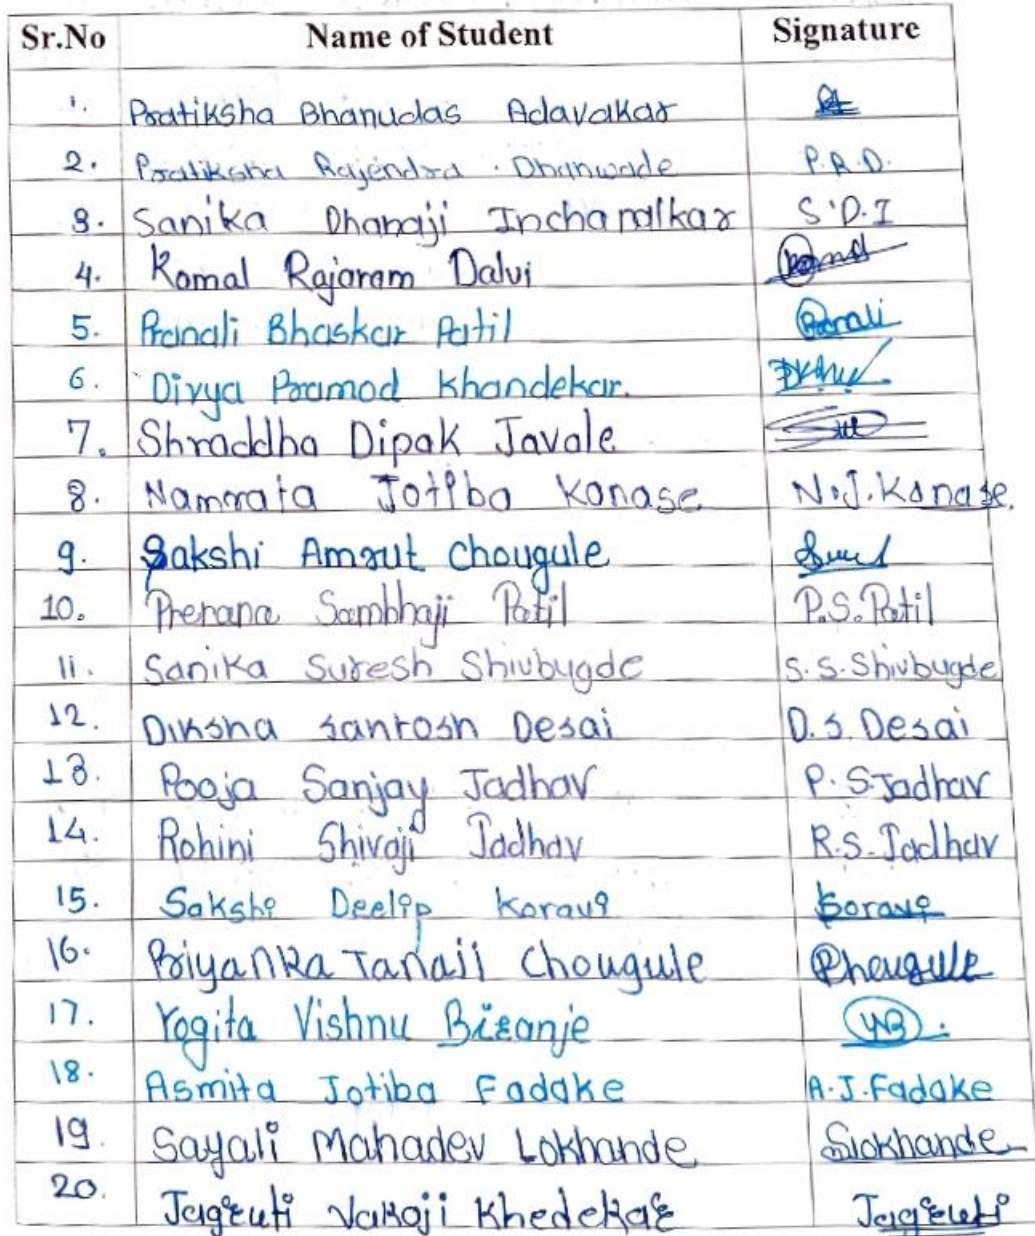 Sr.No Name of Student Signature
1. Pratiksha Bhanudas Adavakar
2. Pratiksha Rajendra . Dhanwade P.R.D.
3. Sanika Dhanaji Inchanalkar S.D.I
4. Komal Rajaram Dalvi Komal
5. Pranali Bhaskar Patil Pranali
6. Divya Pramod Khandekar.
7. Shraddha Dipak Javale
8. Namrata Jotiba Kanase N.J.Kanase.
9. Sakshi Amrut Chougule
10. Prerana Sambhaji Patil P.S.Patil
11. Sanika Suresh Shivbugde S.S.Shivbugde
12. Diksha Santosh Desai D.S.Desai
13. Pooja Sanjay Jadhav P.S.Jadhav
14. Rohini Shivaji Jadhav R.S.Jadhav
15. Sakshi Deelip Koravi Koravi
16. Priyanka Tanaji Chougule Pchougule
17. Yogita Vishnu Biranje YVB.
18. Asmita Jotiba Fadake A.J.Fadake
19. Sayali Mahadev Lokhande Slokhande
20. Jagruti Valkoji Khedekar Jagruti